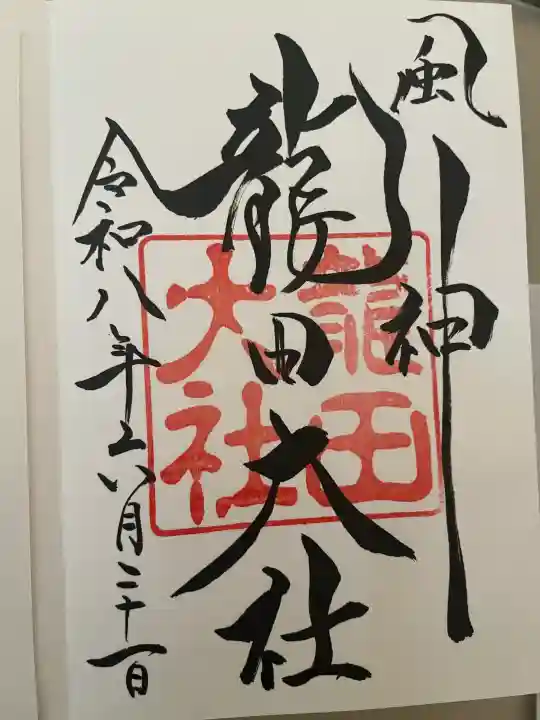 風神
龍田大社
龍田大社
令和八年六月二十一日